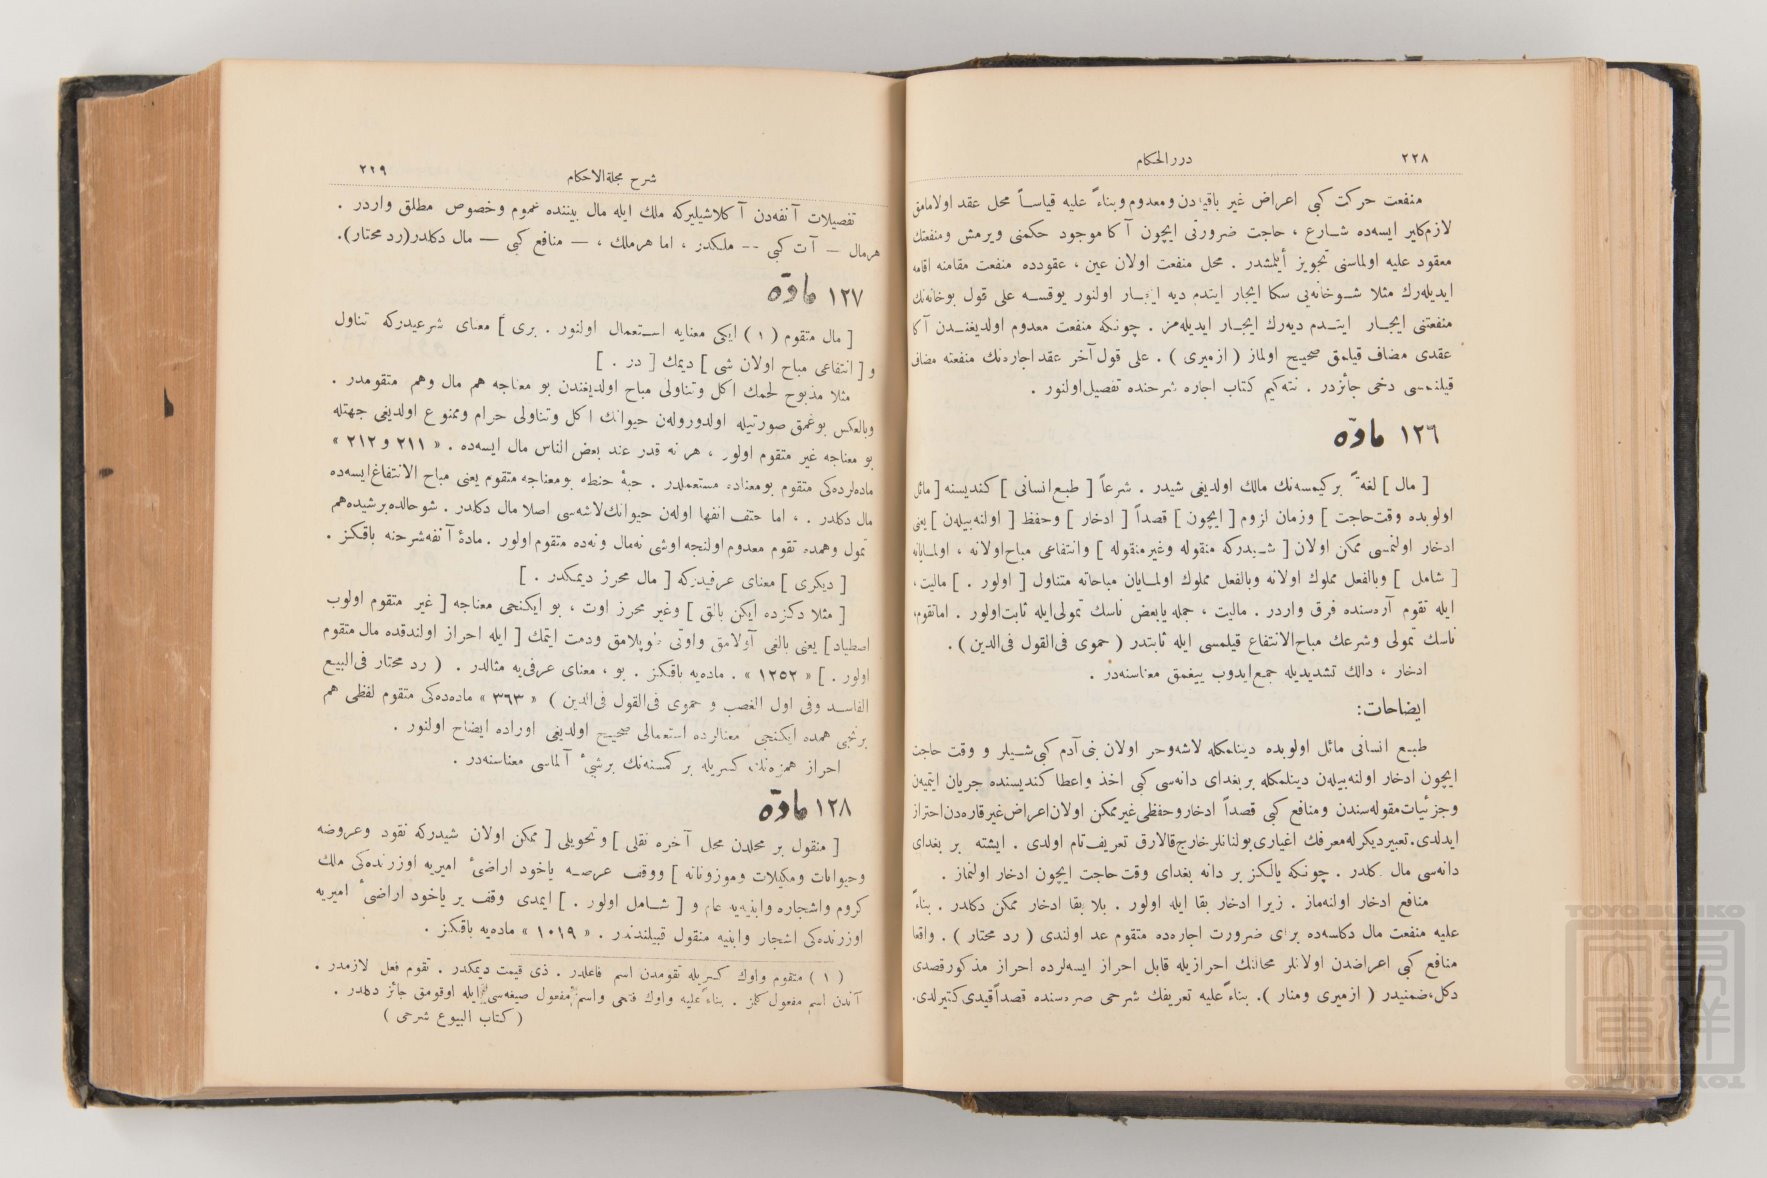 ٢٢٨
دررالحكام
منفعت حركت كبى اعراض غير باقيه‌دن ومعدوم وبناءً عليه قياساً محل عقد اولامامق
لازم‌كلير ايسه‌ده شارع ، حاجت ضرورتى ايچون آ كا موجود حكمنى ويرمش ومنفعتك
معقود عليه اولماسنى تجويز أيلمشدر . محل منفعت اولان عين ، عقودده منفعت مقامنه اقامه
ايديله‌رك مثلا شوخانه‌يى سكا ايجار ايتدم ديه ايجار اولنور يوقسه على قول بوخانه‌نك
منفعتنى ايجار ايتدم ديه‌رك ايجار ايديله‌مز . چونكه منفعت معدوم اولديغندن آ كا
عقدى مضاف قيلمق صحيح اولماز ( ازميرى ) . على قول آخر عقد اجاره‌نك منفعته مضاف
قيلنمسى دخى جائزدر . نته‌كيم كتاب اجاره شرحنده تفصيل اولنور .
١٢٦ مادّه
[ مال ] لغةً بركيمسه‌نك مالك اولديغى شيدر . شرعاً [ طبع‌انسانى ] كنديسنه [ مائل
اولوبده وقت‌حاجت ] وزمان لزوم [ ايچون ] قصداً [ ادخار ] وحفظ [ اولنه‌بيلەن ] يعنى
ادخار اولنمسى ممكن اولان [ شيدركه منقوله وغيرمنقوله ] وانتفاعى مباح‌اولانه ، اولمايانه
[ شامل ] وبالفعل مملوك اولانه وبالفعل مملوك اولمايان مباحاته متناول [ اولور . ] ماليت،
ايله تقوم آره‌سنده فرق واردر . ماليت ، جمله يابعض ناسك تمولى‌ايله ثابت‌اولور . اماتقوم،
ناسك تمولى وشرعك مباح‌الانتفاع قيلمسى ايله ثابتدر ( حموى فى‌القول فى‌الدين ) .
ادخار ، دالك تشديديله جمع‌ايدوب ييغمق معناسنه‌در .
ايضاحات:
طبع انسانى مائل اولوبده دينلمكله لاشه‌وحر اولان بنى‌آدم كبى‌شيلر و وقت حاجت
ايچون ادخار اولنه‌بيلەن دينلمكله بربغداى دانه‌سى كبى اخذ واعطا كنديسنده جريان ايتميەن
وجزئيات‌مقوله‌سندن ومنافع كبى قصداً ادخاروحفظى‌غيرممكن اولان‌اعراض‌غيرقاره‌دن‌احتراز
ايدلدى.تعبيرديكرله‌معرفك اغيارى‌بولنانلرخارج‌قالارق تعريف‌تام اولدى . ايشته بر بغداى
دانه‌سى مال دكلدر . چونكه يالكز بر دانه بغداى وقت‌حاجت ايچون ادخار اولنماز .
منافع ادخار اولنه‌ماز . زيرا ادخار بقا ايله اولور . بلا بقا ادخار ممكن دكلدر . بناءً
عليه منفعت مال دكلسه‌ده براى ضرورت اجاره‌ده متقوم عد اولندى ( رد محتار ) . واقعا
منافع كبى اعراضدن اولانلر محلنك احرازيله قابل احراز ايسه‌لرده احراز مذكورقصدى
دكل،ضمنيدر ( ازميرى ومنار ). بناءً‌عليه تعريفك شرحى صره‌سنده قصداً‌قيدى‌كتيرلدى.
٢٢٩
شرح مجلةالاحكام
تفصيلات آنفه‌دن آ كلاشيليركه ملك ايله مال بيننده عموم وخصوص مطلق واردر .
هرمال — آت كبى — ملكدر ، اما هرملك ، — منافع كبى — مال دكلدر(رد محتار).
١٢٧ مادّه
[ مال متقوم ( ١ ) ايكى معنايه استعمال اولنور . برى ] معناى شرعيدركه تناول
و [ انتفاعى مباح اولان شى ] ديمك [ در . ]
مثلا مذبوح لحمك اكل وتناولى مباح اولديغندن بو معناجه هم مال وهم متقومدر .
وبالعكس بوغمق صورتيله اولدورولەن حيوانك اكل وتناولى حرام وممنوع اولديغى جهتله
بو معناجه غير متقوم اولور ، هر نه قدر عند بعض الناس مال ايسه‌ده . « ٢١١ و ٢١٢ »
ماده‌لرده‌كى متقوم بومعناده مستعملدر . حبۀ حنطه بومعناجه متقوم يعنى مباح الانتفاع‌ايسه‌ده
مال دكلدر . ، اما حتف انفها اولەن حيوانك‌لاشه‌سى اصلا مال دكلدر. شوحالده‌برشيده‌هم
تمول وهمده تقوم معدوم اولنجه اوشى نه‌مال ونه‌ده متقوم‌اولور . مادۀ آنفه‌شرحنه باقكز .
[ ديكرى ] معناى عرفيدركه [ مال محرز ديمكدر . ]
[ مثلا دكزده ايكن بالق ] وغير محرز اوت ، بو ايكنجى معناجه [ غير متقوم اولوب
اصطياد ] يعنى بالغى آولامق واوتى طوپلامق ودمت ايتمك [ ايله احراز اولندقده مال متقوم
اولور . ] « ١٢٥٢ » . ماده‌يه باقكز . بو ، معناى عرفى‌يه مثالدر . ( رد محتار فى‌البيع
الفاسد وفى اول الغصب و حموى فى‌القول فى‌الدين ) « ٣٦٣ » ماده‌ده‌كى متقوم لفظى هم
برنجى همده ايكنجى معنالرده استعمالى صحيح اولديغى اوراده ايضاح اولنور .
احراز همزه‌نك كسريله بر كمسنه‌نك برشيئ آلماسى معناسنه‌در .
١٢٨ مادّه
[ منقول بر محلدن محل آخره نقلى ] وتحويلى [ ممكن اولان شيدركه نقود وعروضه
وحيوانات ومكيلات وموزوناته ] ووقف عرصه ياخود اراضئ اميريه اوزرنده‌كى ملك
كروم واشجاره وابنيه‌يه عام و [ شامل اولور . ] ايمدى وقف ير ياخود اراضئ اميريه
اوزرنده‌كى اشجار وابنيه منقول قبيلندندر . « ١٠١٩ » ماده‌يه باقكز .
( ١ ) متقوم واوك كسريله تقومدن اسم فاعلدر . ذى قيمت ديمكدر . تقوم فعل لازمدر .
آندن اسم مفعول كلمز . بناءً‌عليه واوك فتحى واسم مفعول صيغه‌سى ايله اوقومق جائز دكلدر .
( كتاب البيوع شرحى )
TOYO BUNKO